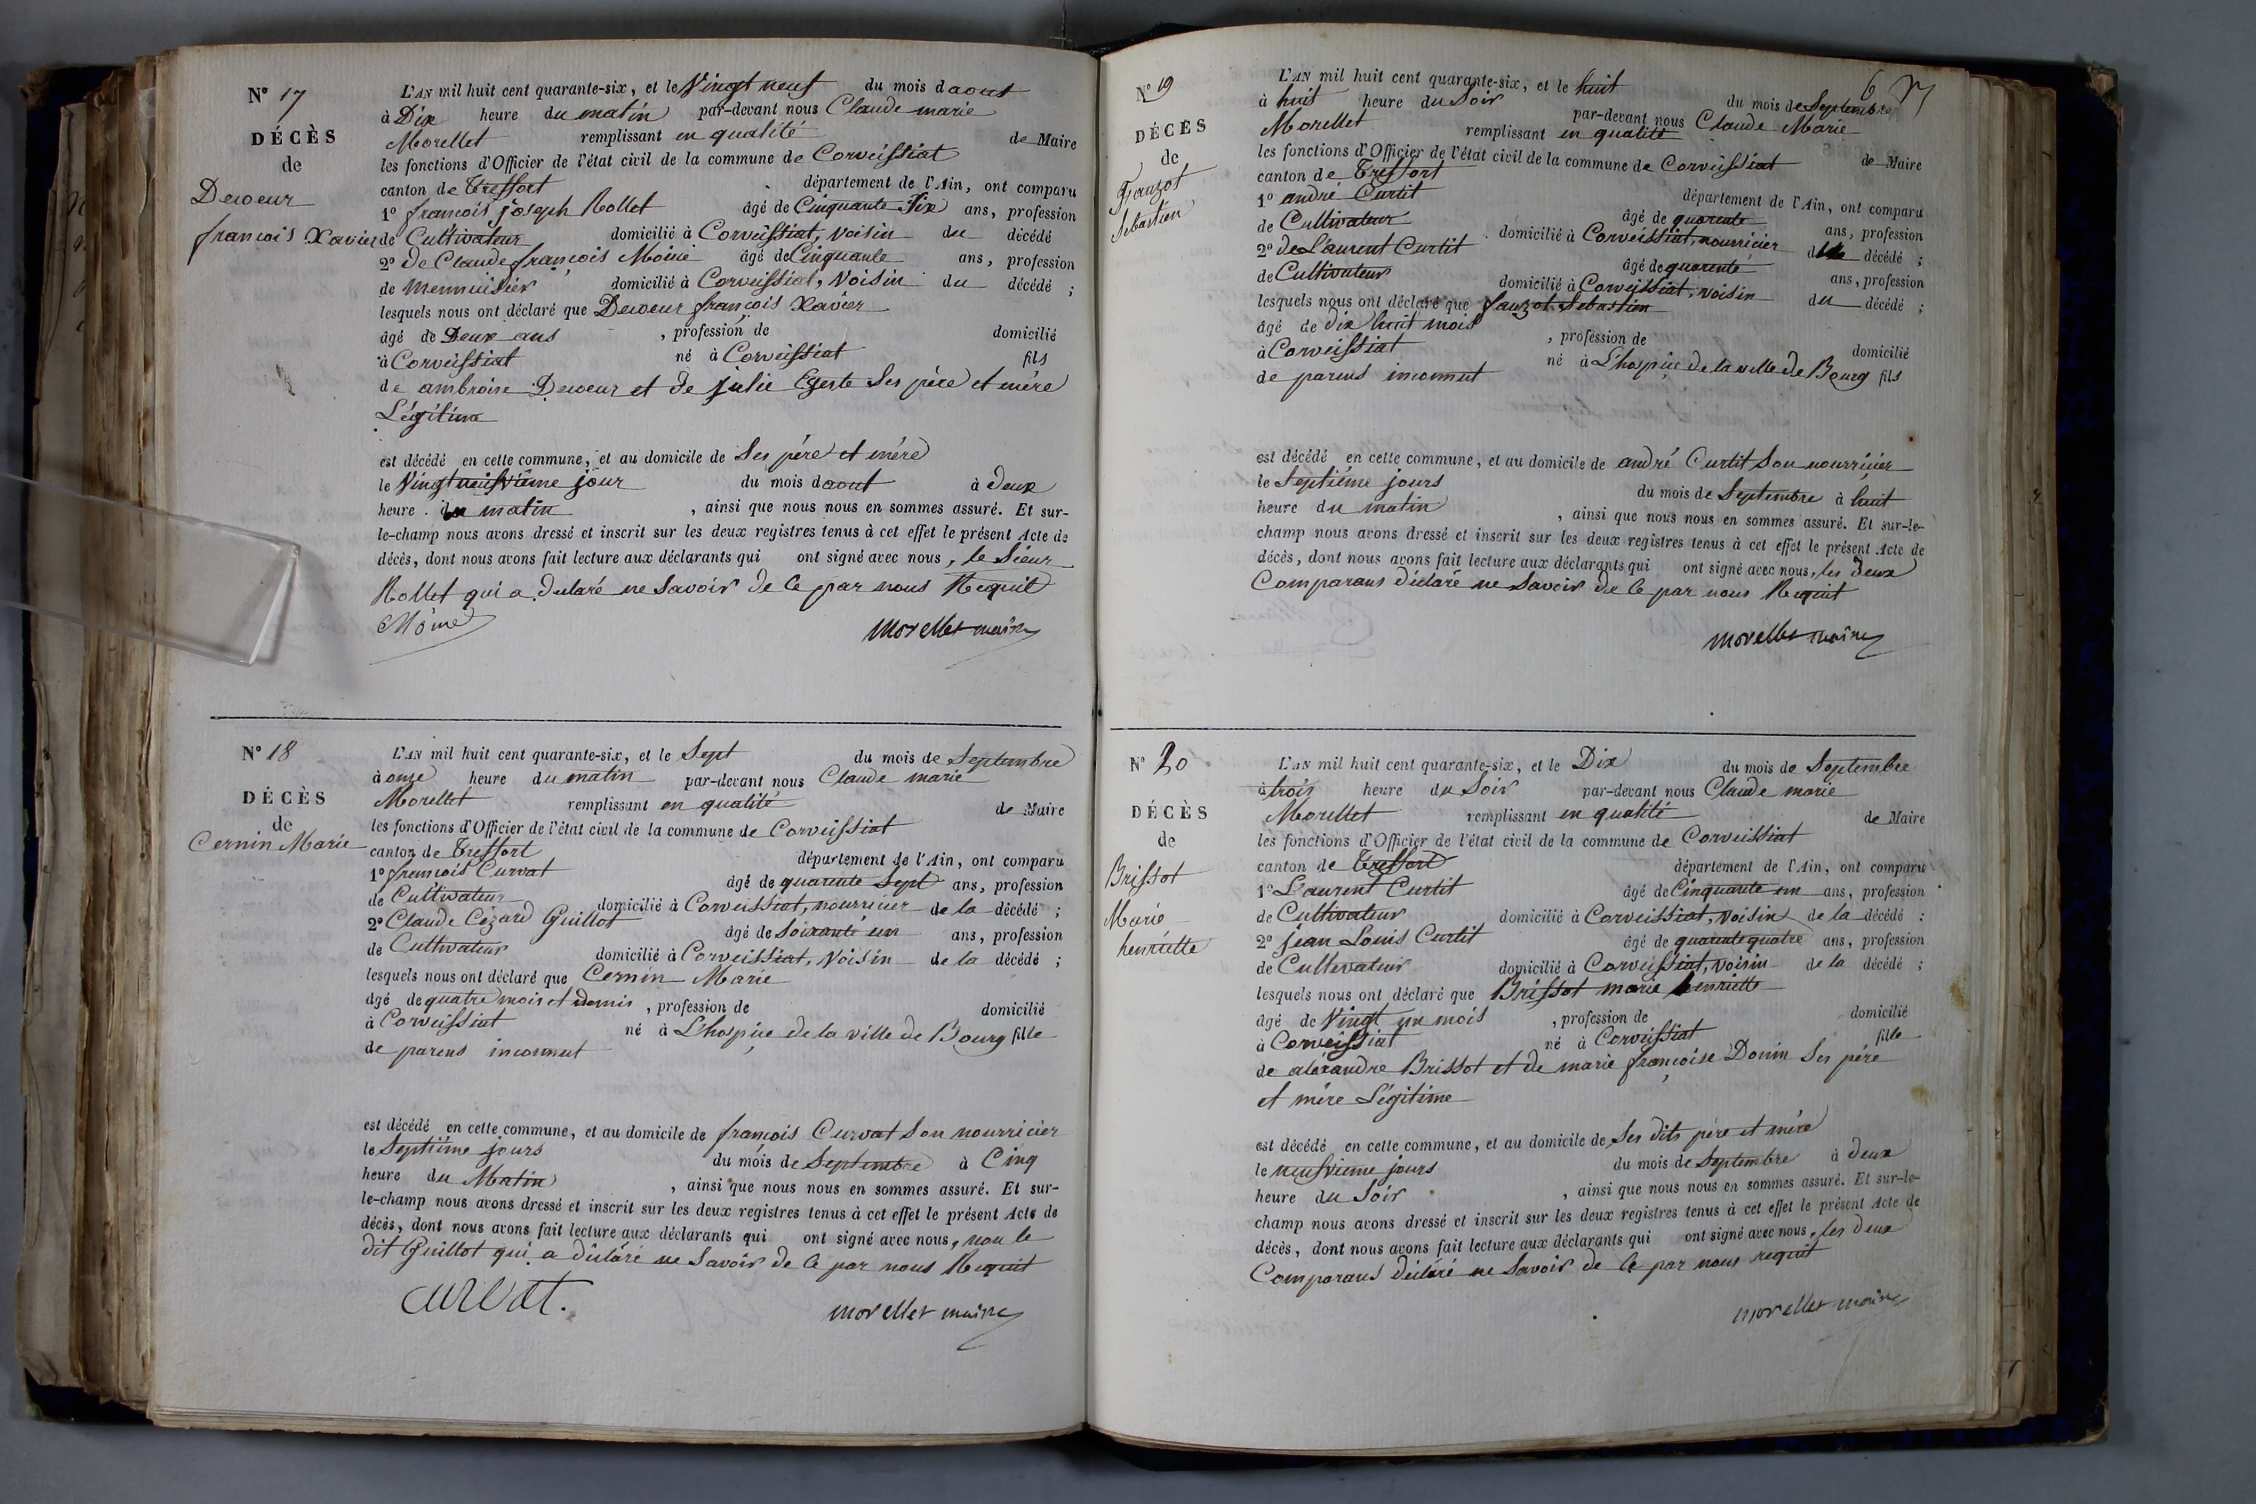 N° 17
DÉCÈS
de
Decoeur
françois Xavier
L'AN mil huit cent quarante-six, et le Vingt neuf du mois d aout
à Dix heure du matin par-devant nous Claude marie
Morellet remplissant en qualité de Maire
les fonctions d'Officier de l'état civil de la commune de Corveissiat
canton de Treffort département de l'Ain, ont comparu
1° françois joseph Rollet âgé de Cinquante Six ans, profession
de Cultivateur domicilié à Corveissiat, voisin du décédé
2° de Claude françois Moine âgé de Cinquante ans, profession
de Mennuisier domicilié à Corveissiat, Voisin du décédé ;
lesquels nous ont déclaré que Decoeur françois Xavier
âgé de Deux ans , profession de domicilié
à Corveissiat né à Corveissiat fils
de ambroise Decoeur et de julie Egeste Ses père et mère
Légitime
est décédé en cette commune, et au domicile de Ses père et mère
le Vingt neufvième jour du mois d aout à deux
heure du matin , ainsi que nous nous en sommes assuré. Et sur-
le-champ nous avons dressé et inscrit sur les deux registres tenus à cet effet le présent Acte de
décès, dont nous avons fait lecture aux déclarants qui ont signé avec nous, le Sieur
Rollet qui a declaré ne Savoir de Ce par nous Requit
Moine morellet maire
N° 18
DÉCÈS
de
Cernin Marie
L'AN mil huit cent quarante-six, et le Sept du mois de Septembre
à onze heure du matin par-devant nous Claude marie
Morellet remplissant en qualité de Maire
les fonctions d'Officier de l'état civil de la commune de Corveissiat
canton de Treffort département de l'Ain, ont comparu
1° françois Curvat âgé de quarente Sept ans, profession
de Cultivateur domicilié à Corveissiat, nourricier de la décédé ;
2° Claude Cézard Guillot âgé de Soixante un ans, profession
de Cultivateur domicilié à Corveissiat, Voisin de la décédé ;
lesquels nous ont déclaré que Cernin Marie
âgé de quatre mois et demis , profession de domicilié
à Corveissiat né à L'hospice de la ville de Bourg fille
de parens inconnut
est décédé en cette commune, et au domicile de françois Curvat Son nourricier
le Septième jours du mois de Septembre à Cinq
heure du Matin , ainsi que nous nous en sommes assuré. Et sur-
le-champ nous avons dressé et inscrit sur les deux registres tenus à cet effet le présent Acte de
décès, dont nous avons fait lecture aux déclarants qui ont signé avec nous, non le
dit Guillot qui a déclaré ne Savoir de Ce par nous Requit
Curvat. morellet maire
6
N° 19
DÉCÈS
de
Fauzot
Sebastien
L'AN mil huit cent quarante-six, et le huit du mois de Septembre
à huit heure du Soir par-devant nous Claude Marie
Morellet remplissant en qualité de Maire
les fonctions d'Officier de l'état civil de la commune de Corveissiat
canton de Treffort département de l'Ain, ont comparu
1° andré Curtit âgé de quarente ans, profession
de Cultivateur domicilié à Corveissiat, nourricier du décédé ;
2° de Laurent Curtit âgé de quarente ans, profession
de Cultivateur domicilié à Corveissiat, voisin du décédé ;
lesquels nous ont déclaré que fauzot Sebastien
âgé de dix huit mois , profession de domicilié
à Corveissiat né à L'hospice de la ville de Bourg fils
de parens inconnut
est décédé en cette commune, et au domicile de andré Curtit Son nourricier
le Septième jours du mois de Septembre à huit
heure du matin , ainsi que nous nous en sommes assuré. Et sur-le-
champ nous avons dressé et inscrit sur les deux registres tenus à cet effet le présent Acte de
décès, dont nous avons fait lecture aux déclarants qui ont signé avec nous, les deux
Comparans déclaré ne Savoir de Ce par nous Requit
morellet maire
N° 20
DÉCÈS
de
Brissot
Marie
henriette
L'AN mil huit cent quarante-six, et le Dix du mois de Septembre
à trois heure du Soir par-devant nous Claude marie
Morellet remplissant en qualité de Maire
les fonctions d'Officier de l'état civil de la commune de Corveissiat
canton de Treffort département de l'Ain, ont comparu
1° Laurent Curtit âgé de Cinquante un ans, profession
de Cultivateur domicilié à Corveissiat, voisin de la décédé :
2° jean Louis Curtit âgé de quarente quatre ans, profession
de Cultivateur domicilié à Corveissiat, voisin de la décédé ;
lesquels nous ont déclaré que Brissot marie henriette
âgé de Vingt un mois , profession de domicilié
à Corveissiat né à Corveissiat fille
de aléxandre Brissot et de marie françoise Donin Ses père
et mère Légitime
est décédé en cette commune, et au domicile de Ses dits père et mère
le neufvieme jours du mois de Septembre à deux
heure du Soir , ainsi que nous nous en sommes assuré. Et sur-le-
champ nous avons dressé et inscrit sur les deux registres tenus à cet effet le présent Acte de
décès, dont nous avons fait lecture aux déclarants qui ont signé avec nous, les deux
Comparans déclaré ne Savoir de Ce par nous requit
morellet maire